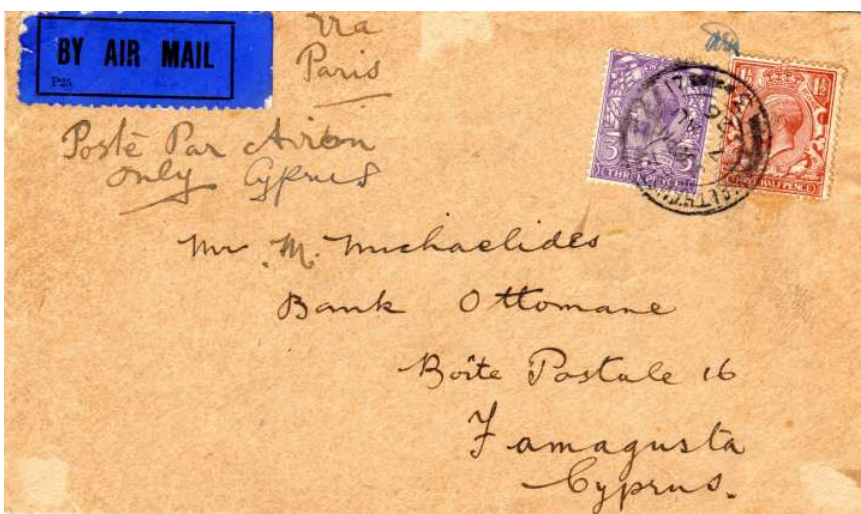 BY AIR MAIL
P25
via
Paris
Poste Par Avion
only Cyprus
3
3
THREE PENCE
1½
1½
THREE HALFPENCE
Mr. M. Michaelides
Bank Ottomane
Boîte Postale 16
Famagusta
Cyprus.